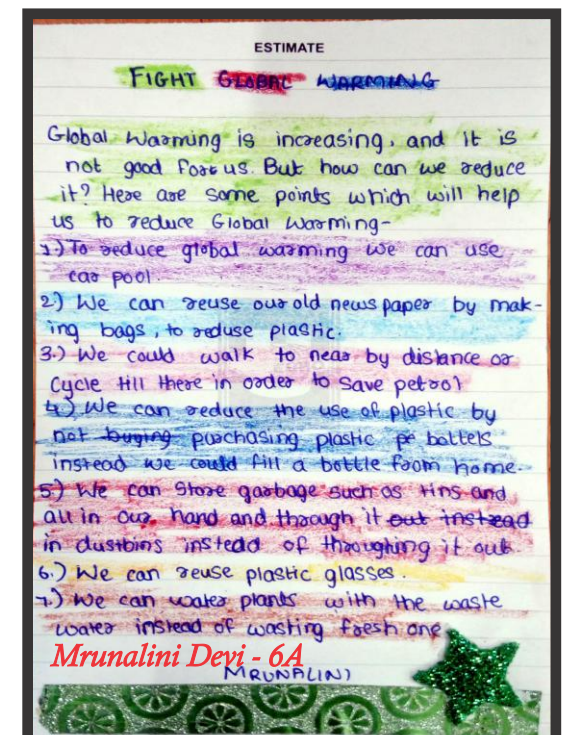 ESTIMATE
FIGHT GLOBAL WARMING
Global Warming is increasing, and it is
not good for us. But how can we reduce
it? Here are some points which will help
us to reduce Global Warming-
1.) To reduce global warming we can use
car pool.
2.) We can reuse our old news paper by mak-
ing bags, to reduse plastic.
3.) We could walk to near by distance or
cycle till there in order to save petrol
4.) We can reduce the use of plastic by
not buying purchasing plastic pe bottels
instead we could fill a bottle from home.
5.) We can store garbage such as tins and
all in our hand and through it out instead
in dustbins instead of throughing it out.
6.) We can reuse plastic glasses.
7.) We can water plants with the waste
water instead of wasting fresh one
Mrunalini Devi - 6A
MRUNALINI